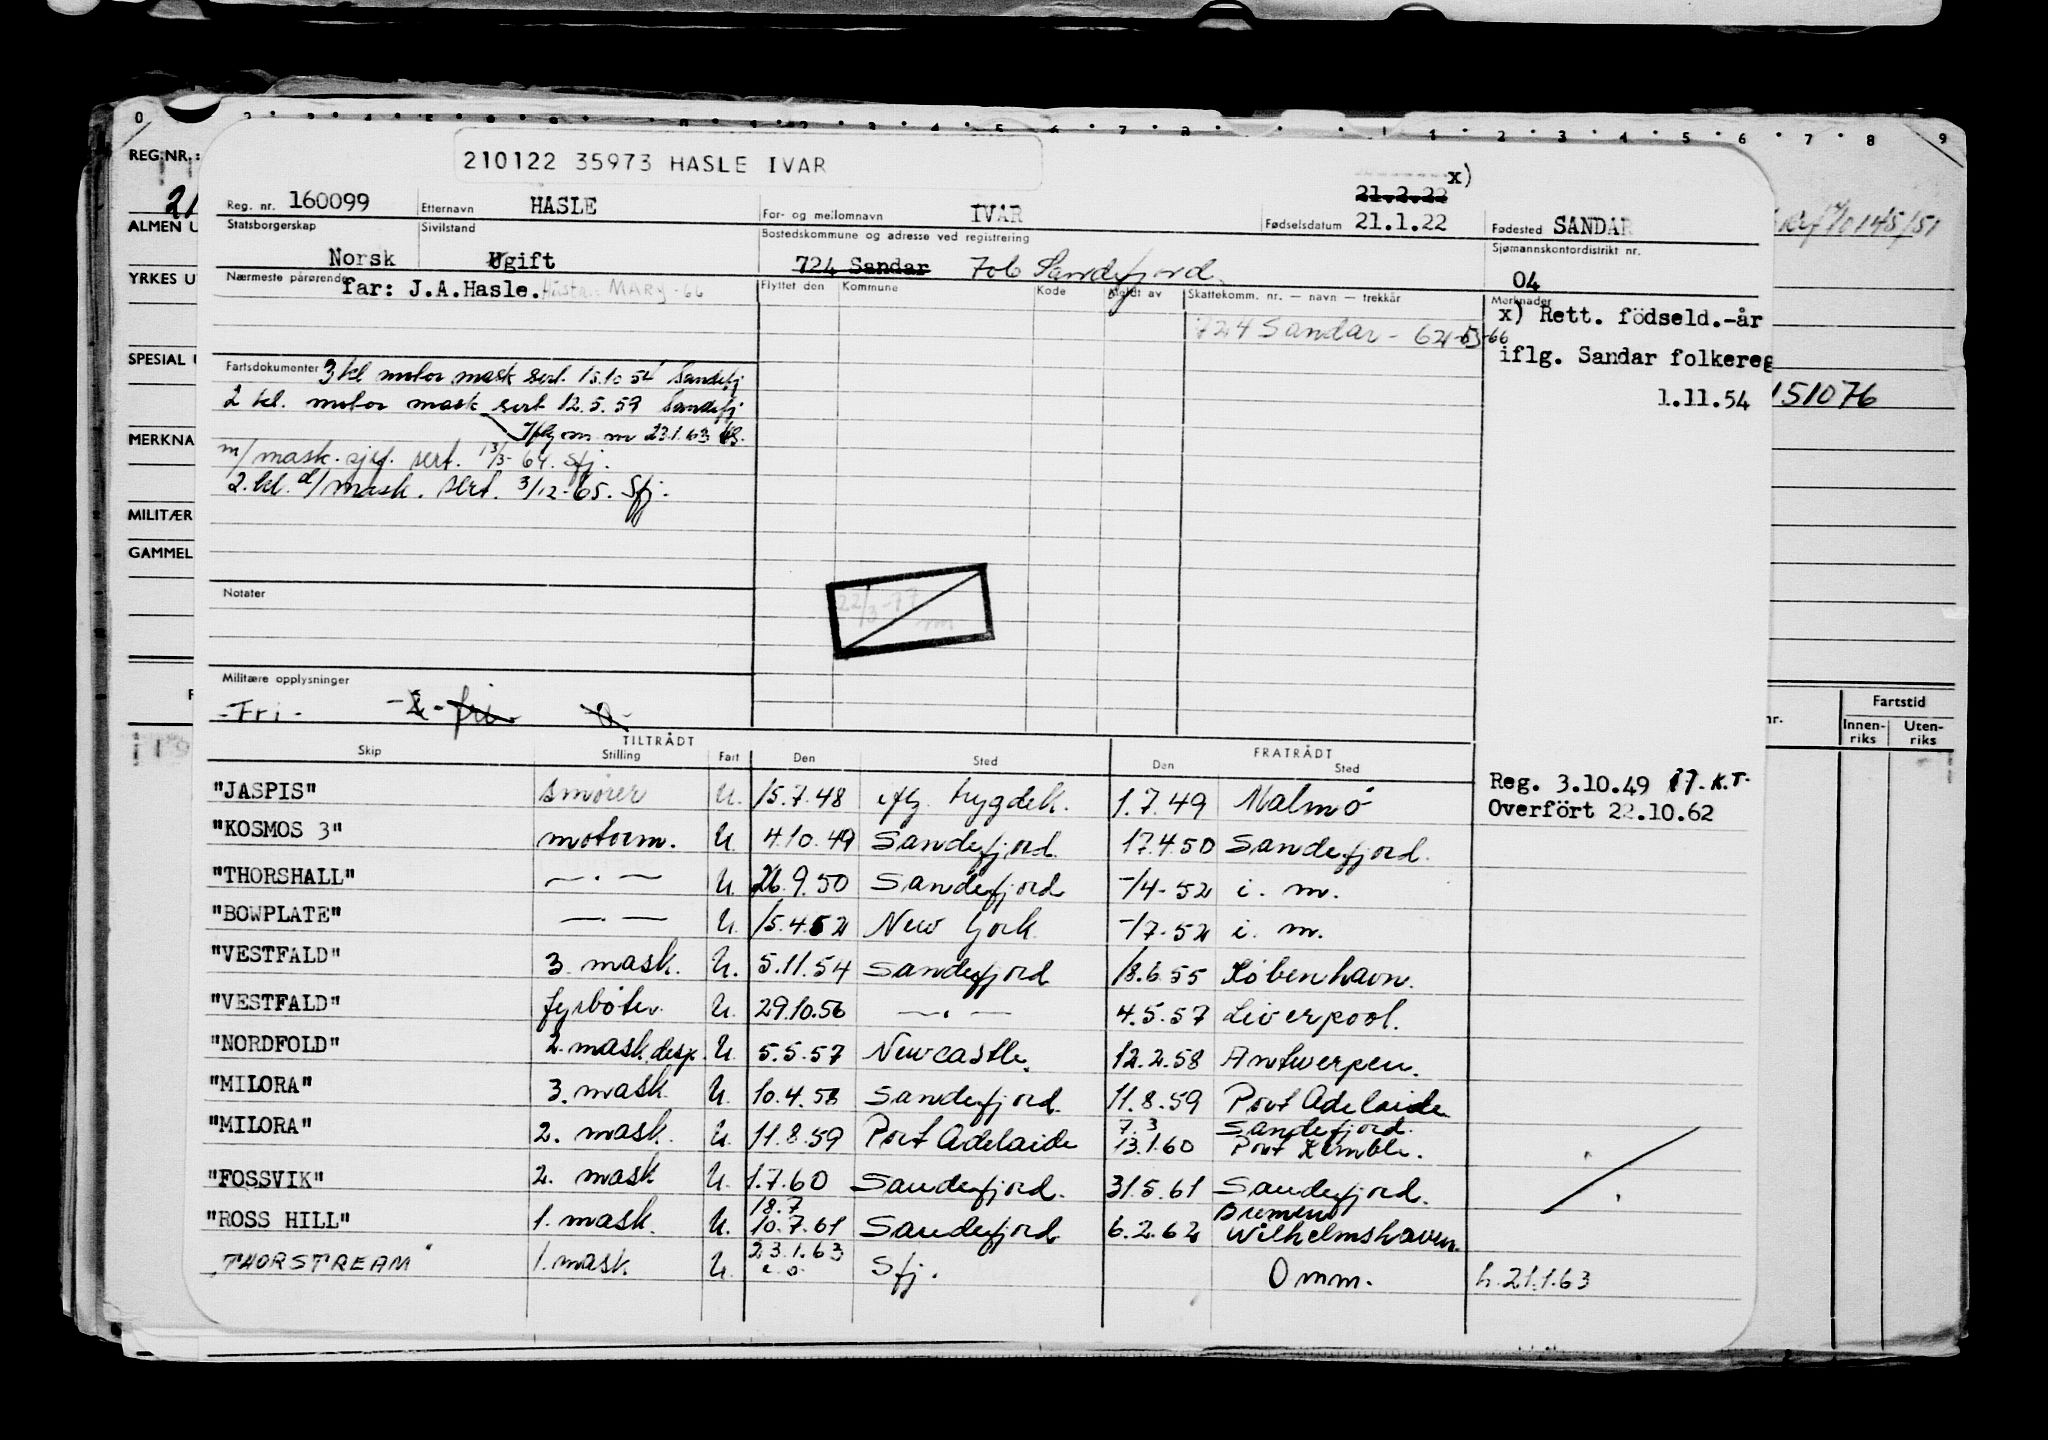 210122 35973 HASLE IVAR
REG.NR.:
ALMEN U
YRKES U
SPESIAL U
MERKNA
MILITÆR
GAMMEL
Reg. nr. 160099 Etternavn HASLE For- og mellomnavn IVAR 21.2.22 x) Fødselsdatum 21.1.22 Fødested SANDAR
Statsborgerskap Norsk Sivilstand Ugift Bostedskommune og adresse ved registrering 724 Sandar 706 Sandefjord Sjømannskontordistrikt nr. 04
Nærmeste pårørende far: J.A.Hasle. MARY -66
Flyttet den Kommune Kode Meldt av Skattekomm. nr. — navn — trekkår
724 Sandar - 64-65-66
Merknader
x) Rett. födseld.-år
iflg. Sandar folkereg
1.11.54
151076
Fartsdokumenter 3 kl motor mask sert. 15.10 54 Sandefj
2 kl. motor mask sert 12.5.59 Sandefj
23.1.63
m/mask. sjef. sert. 13/3-64. Sfj.
2.kl. d/mask. sert. 3/12-65. Sfj.
Notater
22/3-77
Militære opplysninger
-Fri- fri
TILTRÅDT FRATRÅDT
Skip Stilling Fart Den Sted Den Sted
Fartstid
Innen-riks Uten-riks
Reg. 3.10.49 17. K.T.
Overfört 22.10.62
"JASPIS" smører U. 15.7.48 iflg. trygdek. 1.7.49 Malmö
"KOSMOS 3" motorm. U. 4.10.49 Sandefjord 17.4.50 Sandefjord.
"THORSHALL" — . — U. 26.9.50 Sandefjord -/4-52 i. m.
"BOWPLATE" — . — U. 15.4.52 New York -/7-52 i. m.
"VESTFALD" 3 mask. U. 5.11.54 Sandefjord 18.6.55 København.
"VESTFALD" fyrbøter. U. 29.10.56 — . — 4.5.57 Liverpool.
"NORDFOLD" 2. mask. desp. U. 5.5.57 Newcastle. 12.2.58 Antwerpen.
"MILORA" 3. mask. U. 10.4.58 Sandefjord. 11.8.59 Port Adelaide
"MILORA" 2. mask. U. 11.8.59 Port Adelaide 7.3 Sandefjord. 13.1.60 Port Kembla.
"FOSSVIK" 2. mask U. 1.7.60 Sandefjord. 31.5.61 Sandefjord.
"ROSS HILL" 1. mask. U. 18.7 10.7.61 Sandefjord 6.2.62 Bremen Wilhelmshaven.
"THORSTREAM" 1. mask U. 23.1.63 Sfj. Omm. h. 21.1.63